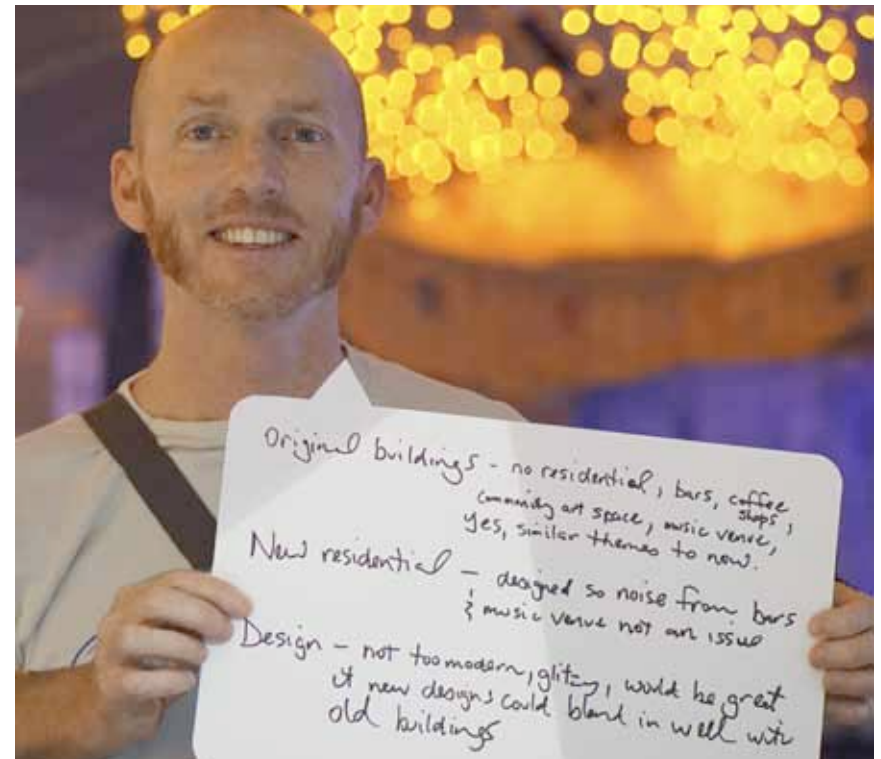 Original buildings - no residential, bars, coffee
shops,
community art space, music venue,
yes, similar themes to now.
New residential - designed so noise from bars
& music venue not an issue
Design - not too modern, glitzy, would be great
if new designs could blend in well with
old buildings